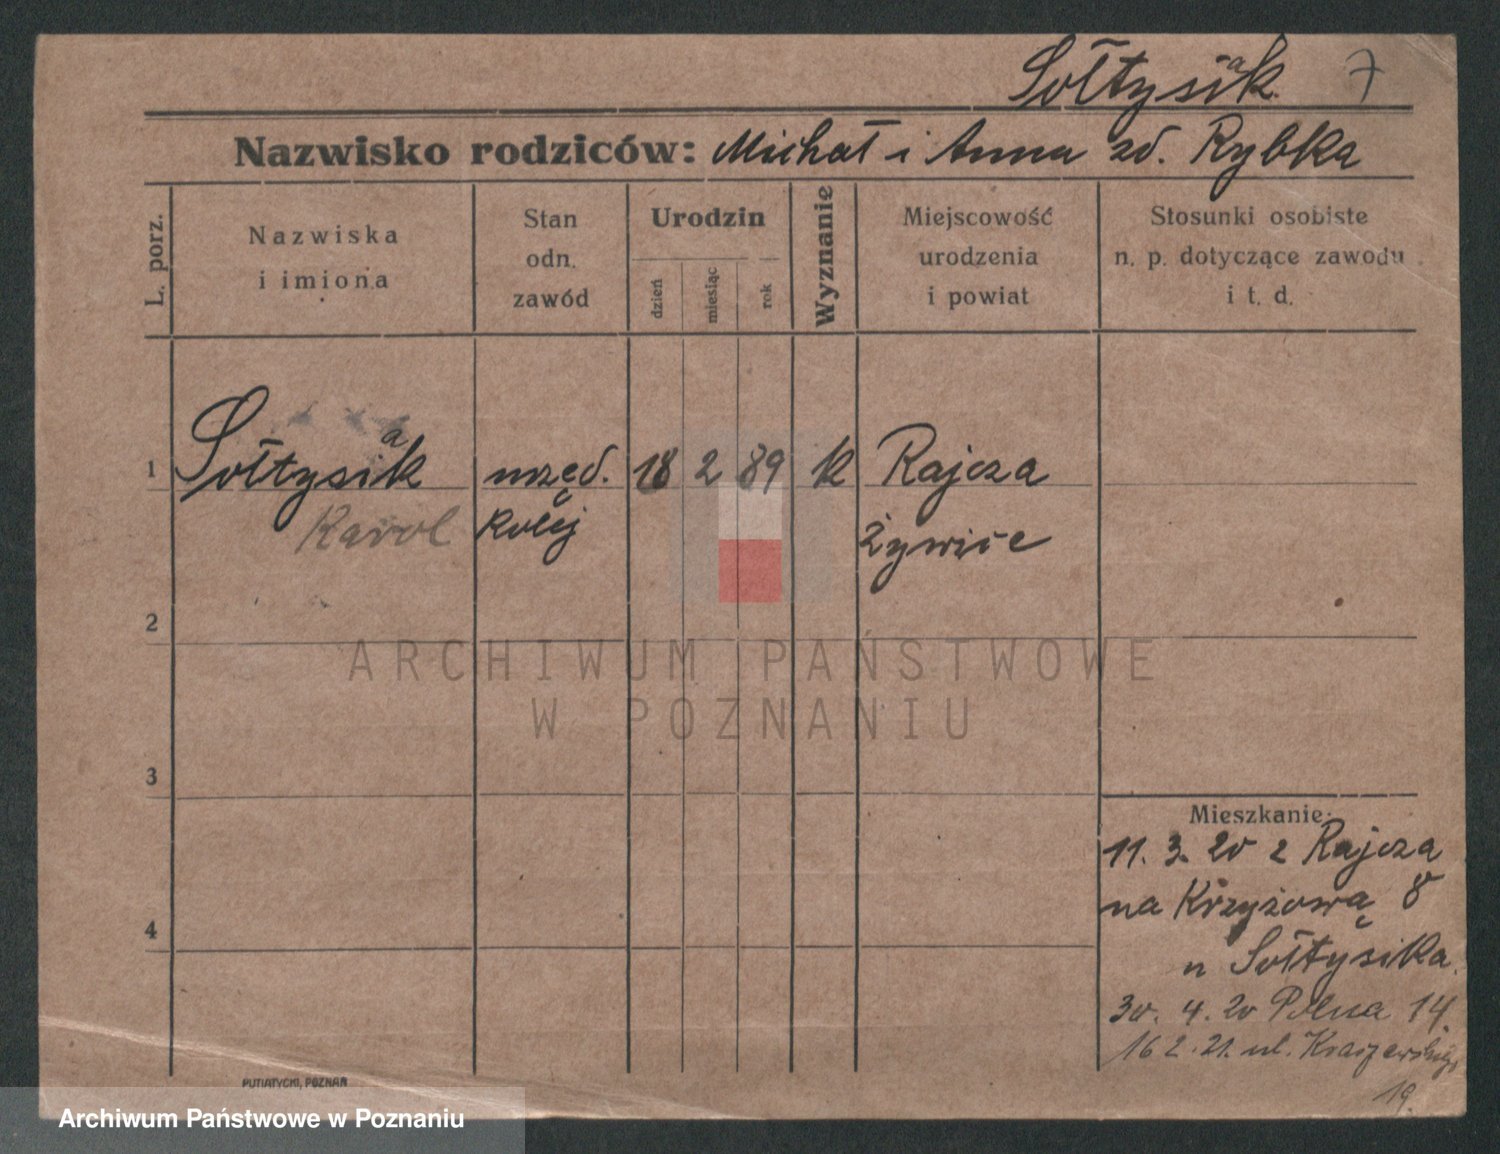 Sołtysiak 7
Nazwisko rodziców: Michał i Anna zd. Rybka
L. porz.
Nazwiska
i imiona
Stan
odn.
zawód
Urodzin
dzień
miesiąc
rok
Wyznanie
Miejscowość
urodzenia
i powiat
Stosunki osobiste
n. p. dotyczące zawodu
i t. d.
1 Sołtysiak urzęd. 18 2 89 rk Rajcza
Karol kolej Żywiec
2
ARCHIWUM PAŃSTWOWE
W POZNANIU
3
Mieszkanie:
11. 3. 20 z Rajcza
na Krzyżową 8
u Sołtysika
4
30. 4. 20 Polna 14
16 2. 21. ul. Kraszewskiego
19.
PUTIATYCKI, POZNAŃ
Archiwum Państwowe w Poznaniu